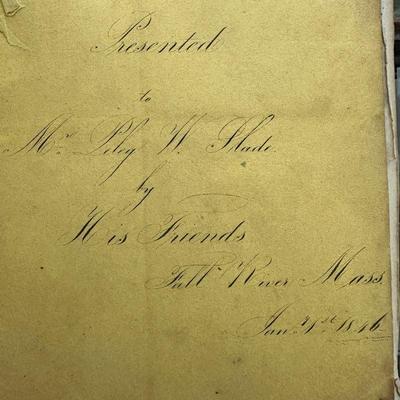 Presented
to
Mr. Peleg W. Slade
by
His Friends
Fall River Mass.
Jany. 1st. 1846